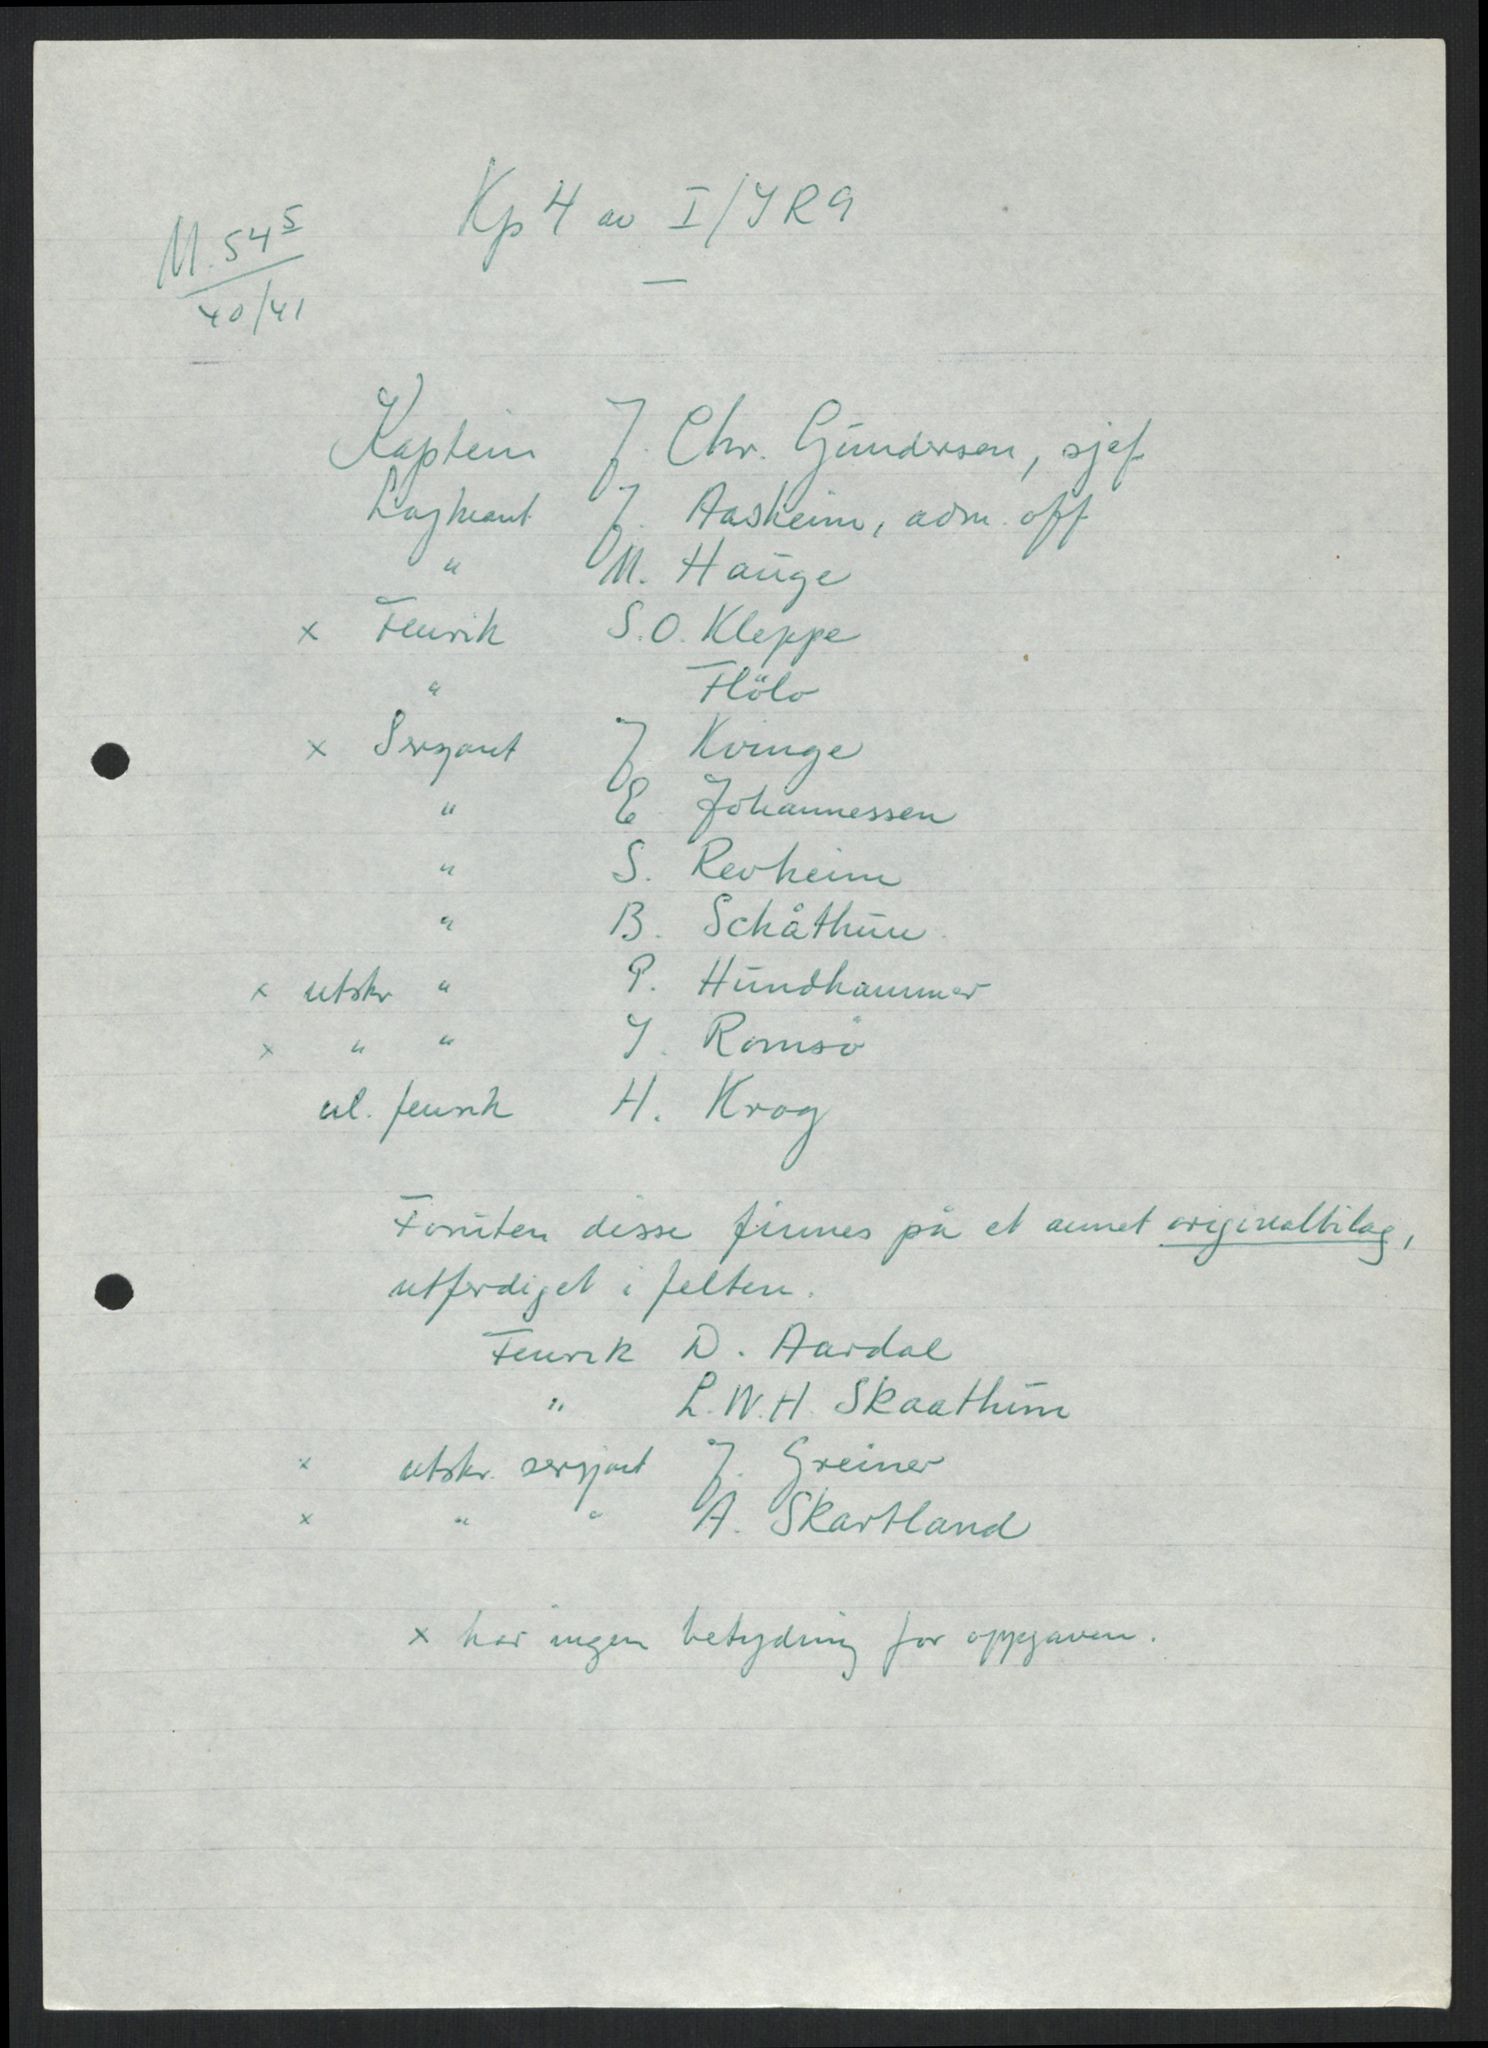 Kp 4 av I/IR9
M. 54 5
40/41
Kaptein J. Chr. Gundersen, sjef
Løytnant J. Aasheim, adm. off
" M. Hauge
x Fenrik S.O. Kleppe
" Flölo
x Sersjant J Kvinge
" E. Johannessen
" S. Revheim
" B. Schåthun
x utskr " P. Hundhammer
x " " I. Romsö
ul. fenrik H. Krog
Foruten disse finnes på et annet originalbilag,
utferdiget i felten.
Fenrik D. Aardal
" L.W.H. Skaathun
x utskr. sersjant J. Greiner
x " " A. Skartland
x har ingen betydning for oppgaven.